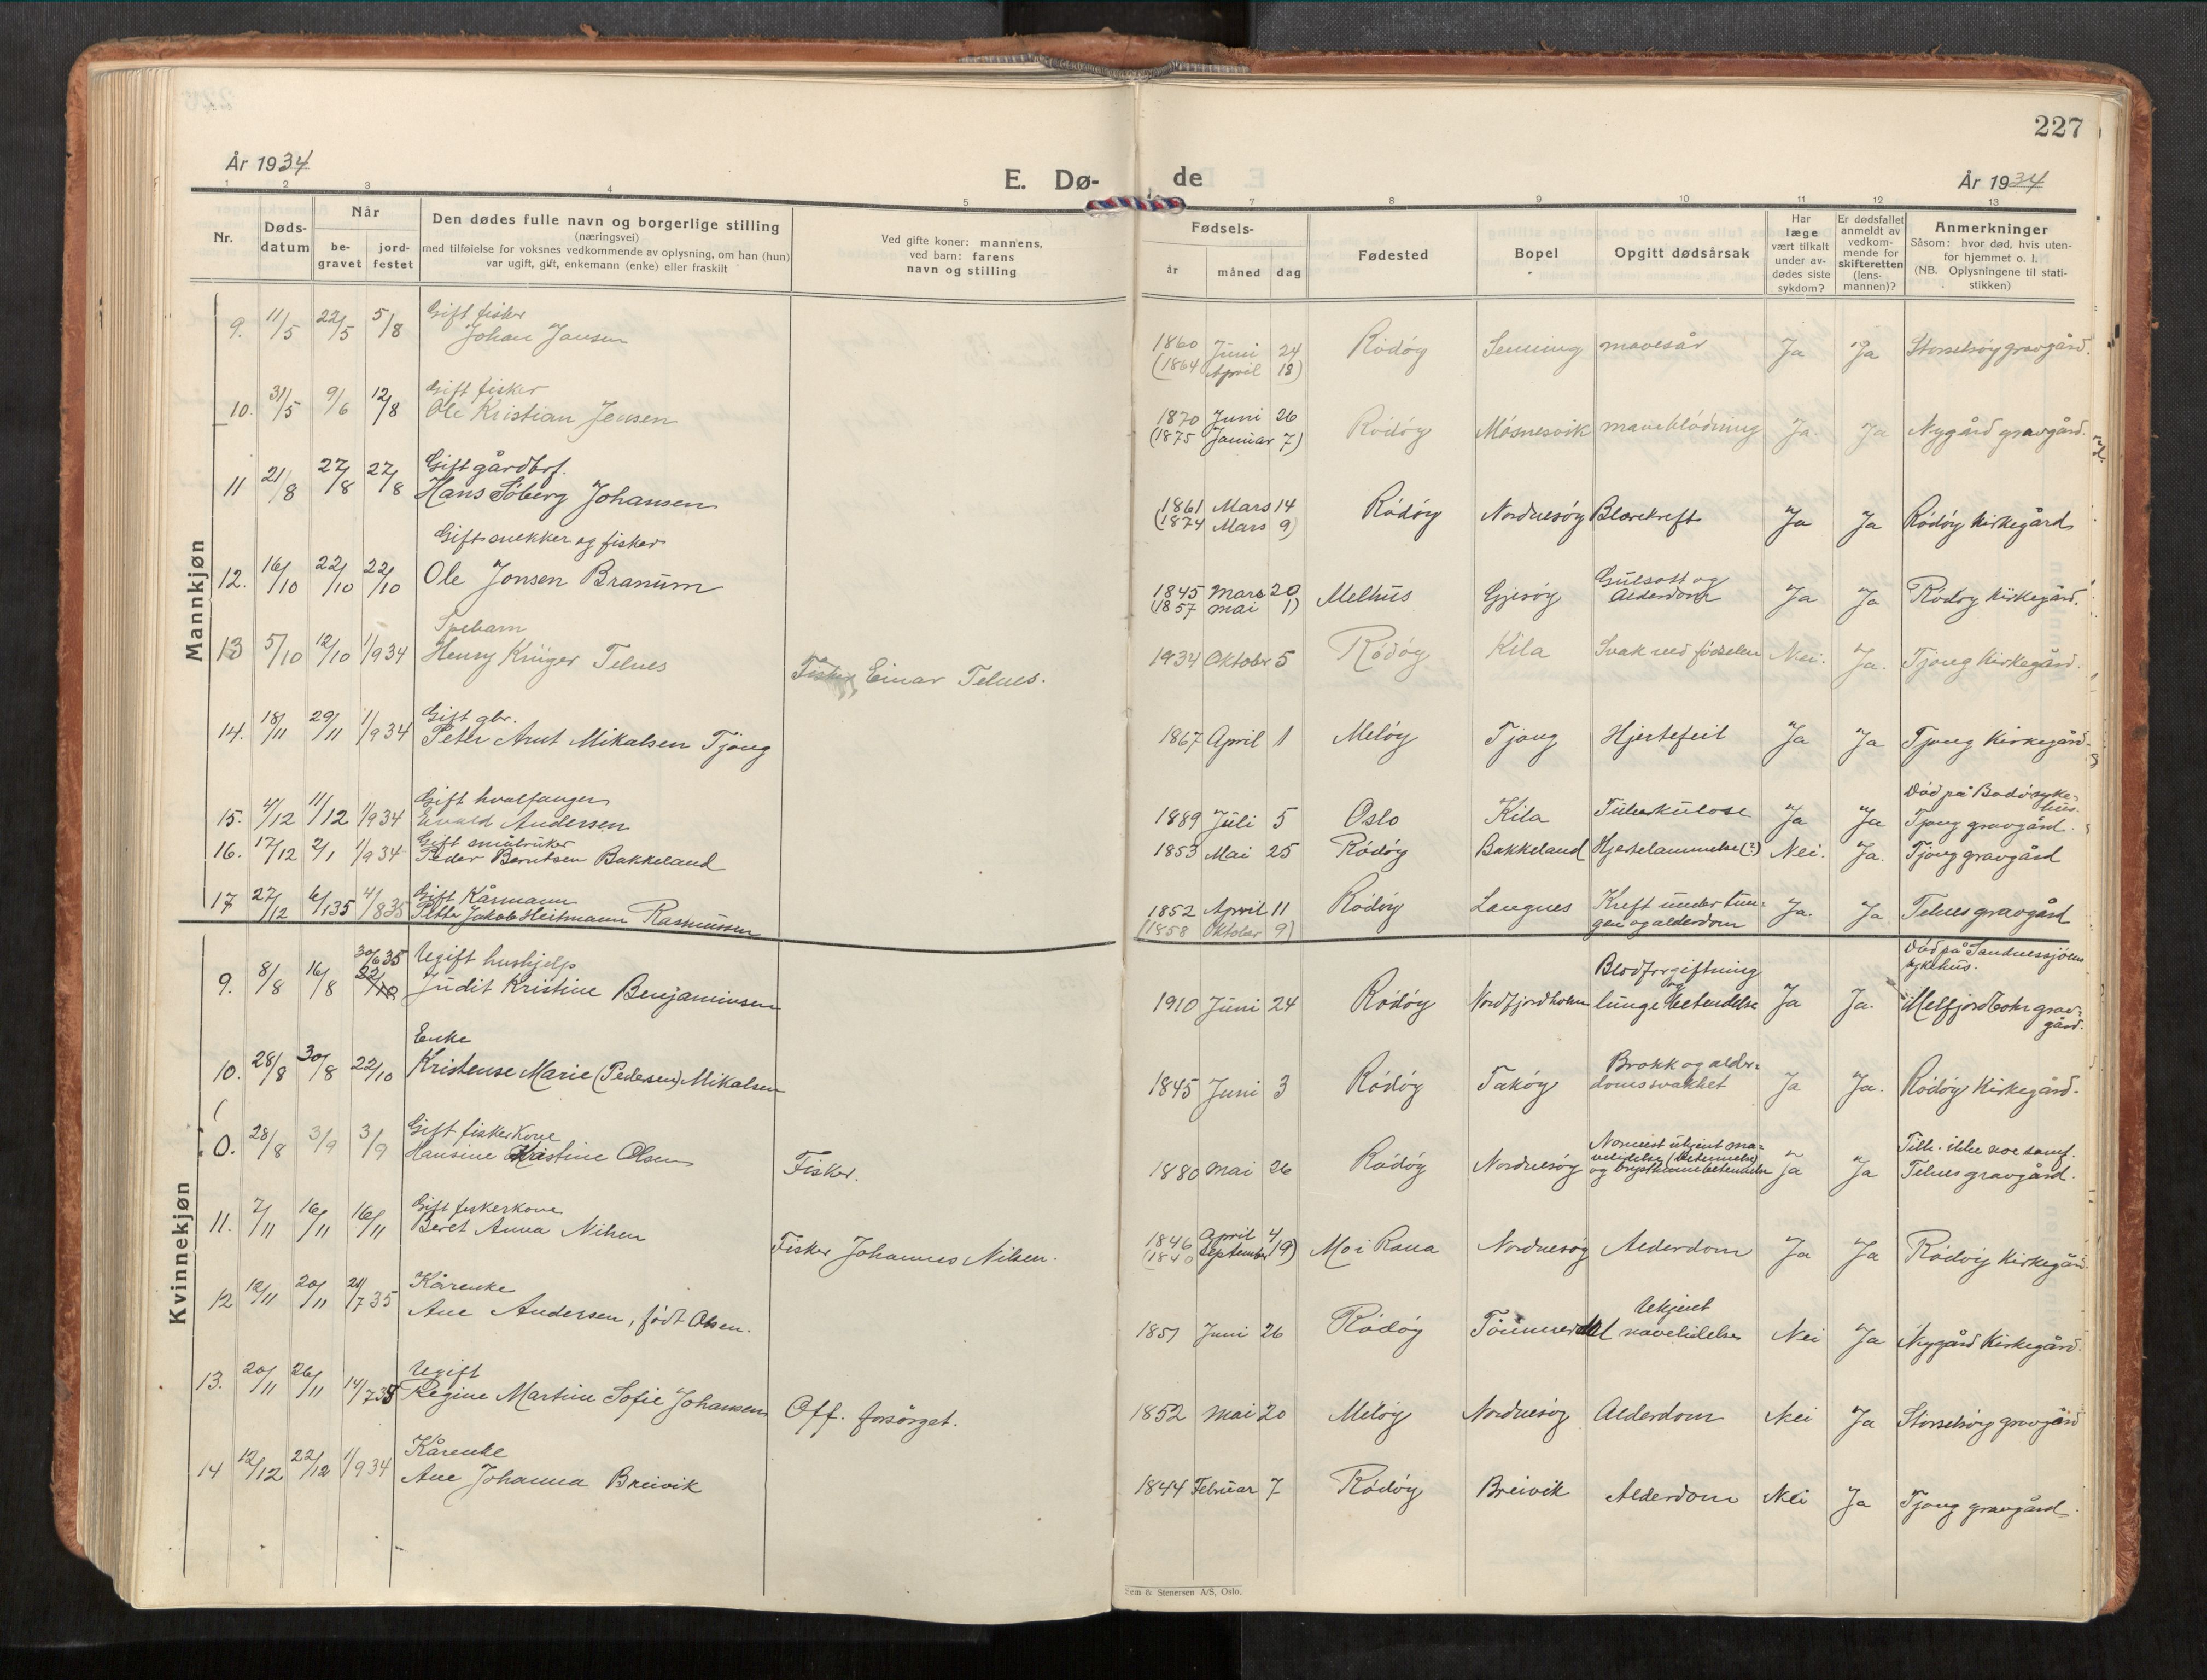 227
År 1934
E. Dø-
de
År 1934
1 2 3 4 5 7 8 9 10 11 12 13
Nr.
Døds-
datum
Når
be-
gravet
jord-
festet
Den dødes fulle navn og borgerlige stilling
(næringsvei)
med tilføielse for voksnes vedkommende av oplysning, om han (hun)
var ugift, gift, enkemann (enke) eller fraskilt
Ved gifte koner: mannens,
ved barn: farens
navn og stilling
Fødsels-
år
måned
dag
Fødested
Bopel
Opgitt dødsårsak
Har
læge
vært tilkalt
under av-
dødes siste
sykdom?
Er dødsfallet
anmeldt av
vedkom-
mende for
skifteretten
(lens-
mannen)?
Anmerkninger
Såsom: hvor død, hvis uten-
for hjemmet o. l.
(NB. Oplysningene til stati-
stikken)
Mannkjøn
Gift fisker
9. 11/5 22/5 5/8 Johan Jansen
1860 Juni 24 Rödöy Senning mavesår Ja Ja Storselsöy gravgård.
(1864 April 18)
Gift fisker
10. 31/5 9/6 12/8 Ole Kristian Jensen
1870 Juni 26 Rödöy Mösnesvik maveblödning Ja. Ja Nygård gravgård.
(1875 Januar 7)
Gift gårdbr.
11 21/8 27/8 27/8 Hans Söberg Johansen
1861 Mars 14 Rödöy Nordnesöy Blærekreft Ja Ja Rödöy Kirkegård
(1874 Mars 9)
Gift snekker og fisker
12. 16/10 22/10 22/10 Ole Jonsen Branum
1845 Mars 20 Melhus Gjesöy Gulsott og Alderdom Ja Ja Rödöy Kirkegård.
(1857 mai 1)
Spebarn
13 5/10 12/10 1/9 34 Henry Krüger Telnes Fisker Einar Telnes.
1934 Oktober 5 Rödöy Kila Svak ved födselen Nei. Ja. Tjong Kirkegård.
Gift gbr.
14. 18/11 29/11 1/9 34 Peter Arnt Mikalsen Tjong
1867 April 1 Melöy Tjong Hjertefeil Ja Ja Tjong Kirkegård.
Gift hvalfanger
15. 4/12 11/12 1/9 34 Evald Andersen
Död på Bodö syke-
hus.
1889 Juli 5 Oslo Kila Tuberkulose Ja Ja Tjong gravgård.
Gift småbruker
16. 17/12 2/1 1/9 34 Peder Berntsen Bakkeland
1853 Mai 25 Rödöy Bakkeland Hjertelammelse (?) Nei. Ja. Tjong gravgård
Gift Kårmann
17 27/12 6/1 35 4/8 35 Petter Jakob Heitmann Rasmussen
1852 April 11 Rödöy Langnes Kreft under tun-
gen og alderdom Ja. Ja Telnes gravgård
(1858 Oktober 9)
Kvinnekjøn
30/6 35 Ugift hushjelp
9. 8/8 16/8 22/10 Judit Kristine Benjaminsen
Död på Sandnessjöen
sykehus.
1910 Juni 24 Rödöy Nordfjordholm Blodforgiftning
og
lungebetendelse Ja Ja. Melfjordbotn grav-
gård.
Enke
10. 28/8 30/8 22/10 Kristense Marie (Pedersen) Mikalsen
1845 Juni 3 Rödöy Taköy Brokk og alder-
domssvakhet Ja Ja. Rödöy Kirkegård.
Gift fiskerkone
0. 28/8 3/9 3/9 Hansine Kristine Olsen Fisker.
1880 mai 26 Rödöy Nordnesöy Nærmest ukjent ma-
velidelse (betennelse)
og brysthinnebetennelse Ja Ja Telnes gravgård.
Gift fiskerkone
11. 7/11 16/11 16/11 Beret Anna Nilsen Fisker Johannes Nilsen.
1846 April 4 Mo i Rana Nordnesöy Alderdom Ja Ja Rödöy Kirkegård.
(1840 September 19)
Kårenke
12 12/11 20/11 21/7 35 Ane Andersen, född Olsen.
1851 Juni 26 Rödöy Tömmerdal Ukjent
mavelidelse Nei Ja Nygård Kirkegård.
Ugift
13. 20/11 26/11 14/7 35 Regine Martine Sofie Johansen Off. forsörget.
1852 mai 20 Melöy Nordnesöy Alderdom Nei Ja Storselsöy gravgård
Kårenke
14 12/12 22/12 1/9 34 Ane Johanna Breivik
1844 Februar 7 Rödöy Breivik Alderdom Nei Ja Tjong gravgård.
Sem & Stenersen A/S, Oslo.